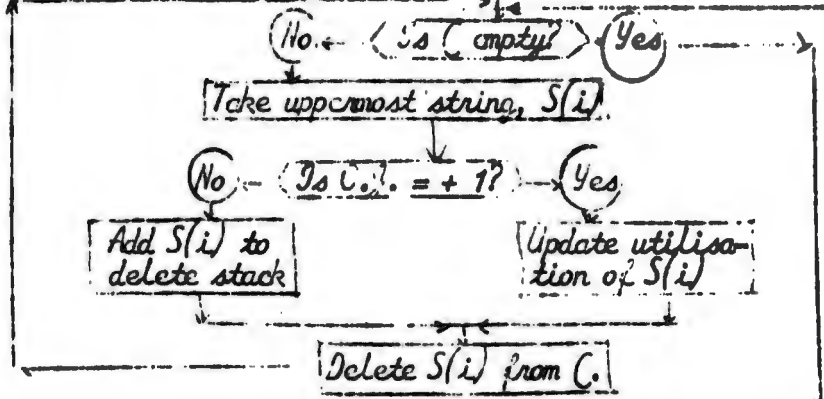 No
Is C empty?
Yes
Take uppermost string, S(i)
No
Is C.?. = + 1?
Yes
Add S(i) to
delete stack
Update utilisa-
tion of S(i)
Delete S(i) from C.